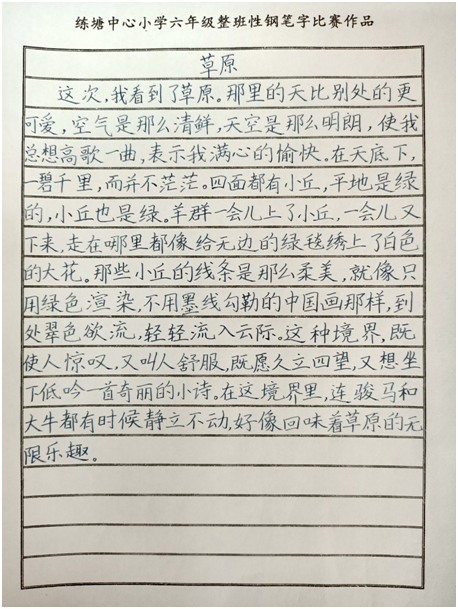 练塘中心小学六年级整班性钢笔字比赛作品
草原
这次，我看到了草原。那里的天比别处的更
可爱，空气是那么清鲜，天空是那么明朗，使我
总想高歌一曲，表示我满心的愉快。在天底下，
一碧千里，而并不茫茫。四面都有小丘，平地是绿
的，小丘也是绿。羊群一会儿上了小丘，一会儿又
下来，走在哪里都像给无边的绿毯绣上了白色
的大花。那些小丘的线条是那么柔美，就像只
用绿色渲染，不用墨线勾勒的中国画那样，到
处翠色欲流，轻轻流入云际。这种境界，既
使人惊叹，又叫人舒服，既愿久立四望，又想坐
下低吟一首奇丽的小诗。在这境界里，连骏马和
大牛都有时候静立不动，好像回味着草原的无
限乐趣。